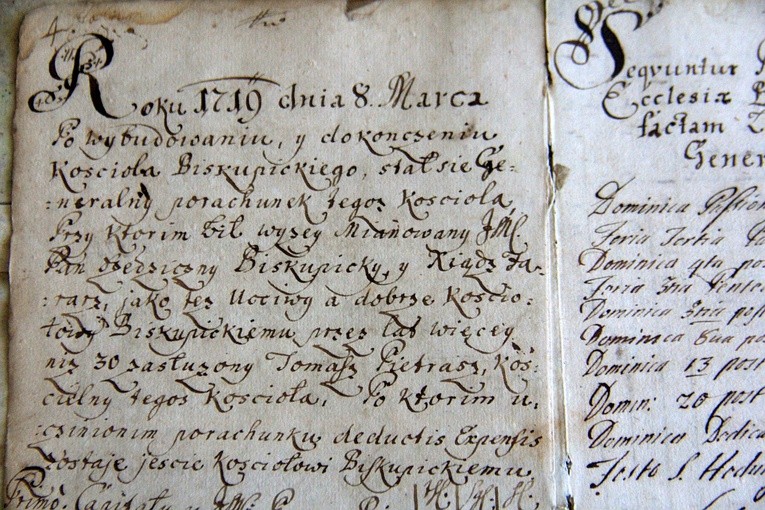 4.
Roku 1719 dnia 8. Marca
Po wybudowaniu, y dokonczeniu
Koscioła Biskupickiego, stał sie Ge-
:neralny porachunek tegoz Kosciola
Przy ktorim bił wyzey Mianowany JM.
Pan Dziedziczny Biskupicky, y Xiądz Fa-
:rarz, jako tez Uociwy a dobrze Koscio:
łowy Biskupickiemu przez lat więcey
niz 30 zasłuzony Tomasz Pietrasz, Kos:
cielny tegoz Kosciola, Po ktorim u:
:czinionim porachunku deductis Expensis
zostaje jescie Kosciołowi Biskupickiemu
Primo. Capitału
Seqvuntur
Ecclesiæ
factam
Gener
Dominica
Feria Tertia
Dominica 4ta post
Feria 3tia
Dominica 3tia post
Dominica 8va po
Dominica 13 post
Domin: 20 post
Dominica Dedica
Festo S.